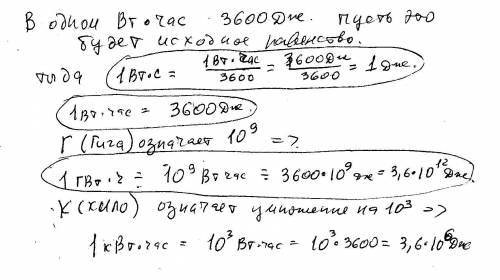 В одном Вт•час 3600 Дж. пусть это
будет исходное равенство.
тогда 1Вт.с = 1Вт.час/3600 = 3600Дж/3600 = 1 Дж.
1Вт.час = 3600Дж.
Г (Гига) означает 10⁹ =>.
1 ГВт.ч = 10⁹ Вт час = 3600•10⁹ дж = 3,6•10¹² Дж.
К (кило) означает умножение на 10³ =>
1 кВт.час = 10³ Вт.час = 10³•3600 = 3,6•10⁶ Дж